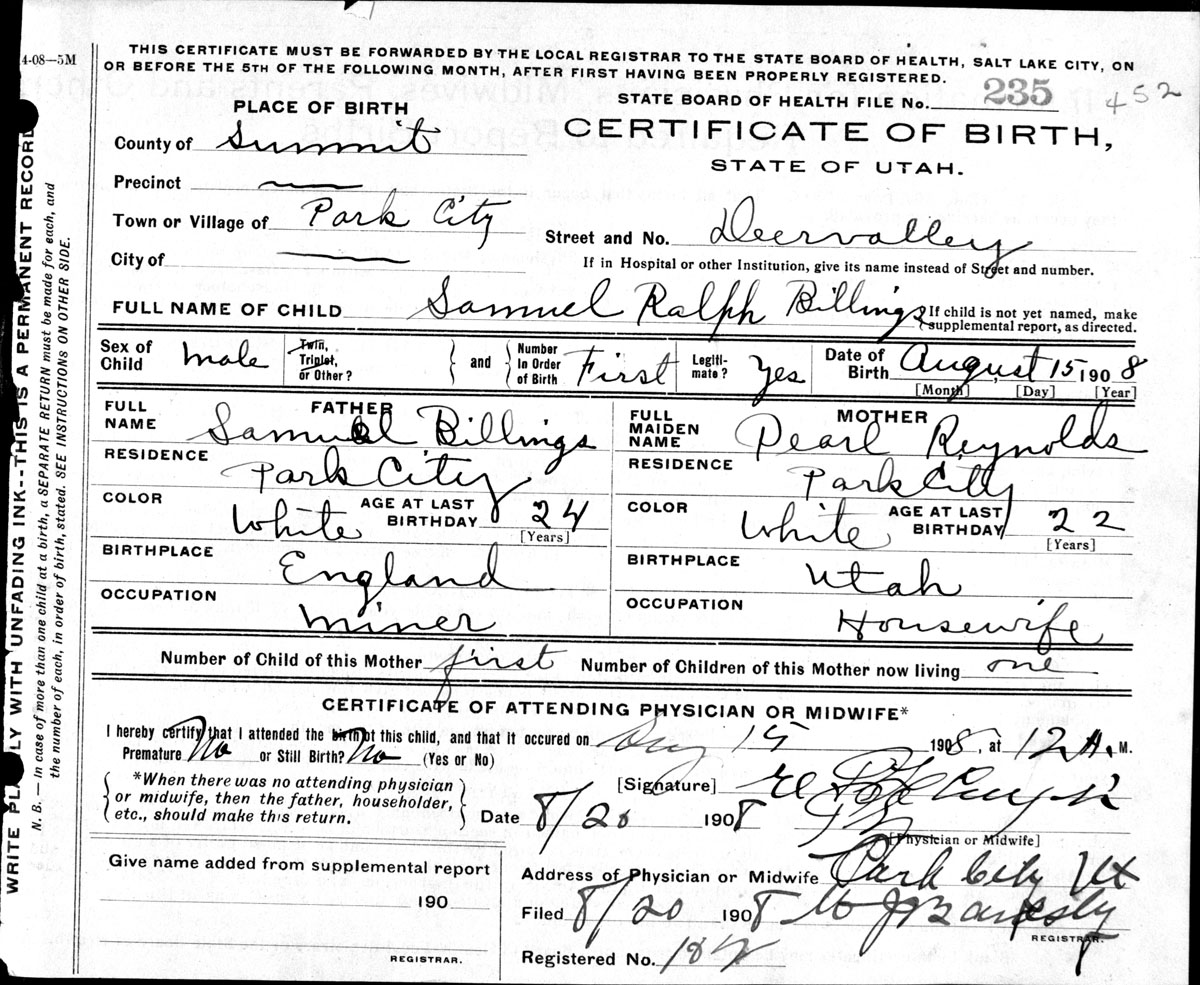 4-08—5M
THIS CERTIFICATE MUST BE FORWARDED BY THE LOCAL REGISTRAR TO THE STATE BOARD OF HEALTH, SALT LAKE CITY, ON
OR BEFORE THE 5TH OF THE FOLLOWING MONTH, AFTER FIRST HAVING BEEN PROPERLY REGISTERED.
STATE BOARD OF HEALTH FILE No. 235 452
PLACE OF BIRTH
CERTIFICATE OF BIRTH,
STATE OF UTAH.
County of Summit
Precinct
Town or Village of Park City
Street and No. Deervalley
City of
If in Hospital or other Institution, give its name instead of Street and number.
FULL NAME OF CHILD Samuel Ralph Billings
If child is not yet named, make
supplemental report, as directed.
Sex of Child male
Twin, Triplet, or Other?
and
Number In Order of Birth First
Legiti-mate? Yes
Date of Birth August 15 1908
[Month] [Day] [Year]
FATHER
FULL NAME Samuel Billings
RESIDENCE Park City
COLOR White AGE AT LAST BIRTHDAY 24
[Years]
BIRTHPLACE England
OCCUPATION Miner
MOTHER
FULL MAIDEN NAME Pearl Reynolds
RESIDENCE Park City
COLOR White AGE AT LAST BIRTHDAY 22
[Years]
BIRTHPLACE Utah
OCCUPATION Housewife
Number of Child of this Mother first Number of Children of this Mother now living one
CERTIFICATE OF ATTENDING PHYSICIAN OR MIDWIFE*
I hereby certify that I attended the birth of this child, and that it occured on Aug 15 1908, at 12 A. M.
Premature No or Still Birth? No (Yes or No)
*When there was no attending physician
or midwife, then the father, householder,
etc., should make this return.
[Signature]
Date 8/20 1908
[Physician or Midwife]
Give name added from supplemental report
190
REGISTRAR.
Address of Physician or Midwife Park City Ut
Filed 8/20 1908
REGISTRAR.
Registered No.
WRITE PLAINLY WITH UNFADING INK--THIS IS A PERMANENT RECORD
N. B. — In case of more than one child at a birth, a SEPARATE RETURN must be made for each, and
the number of each, in order of birth, stated. SEE INSTRUCTIONS ON OTHER SIDE.